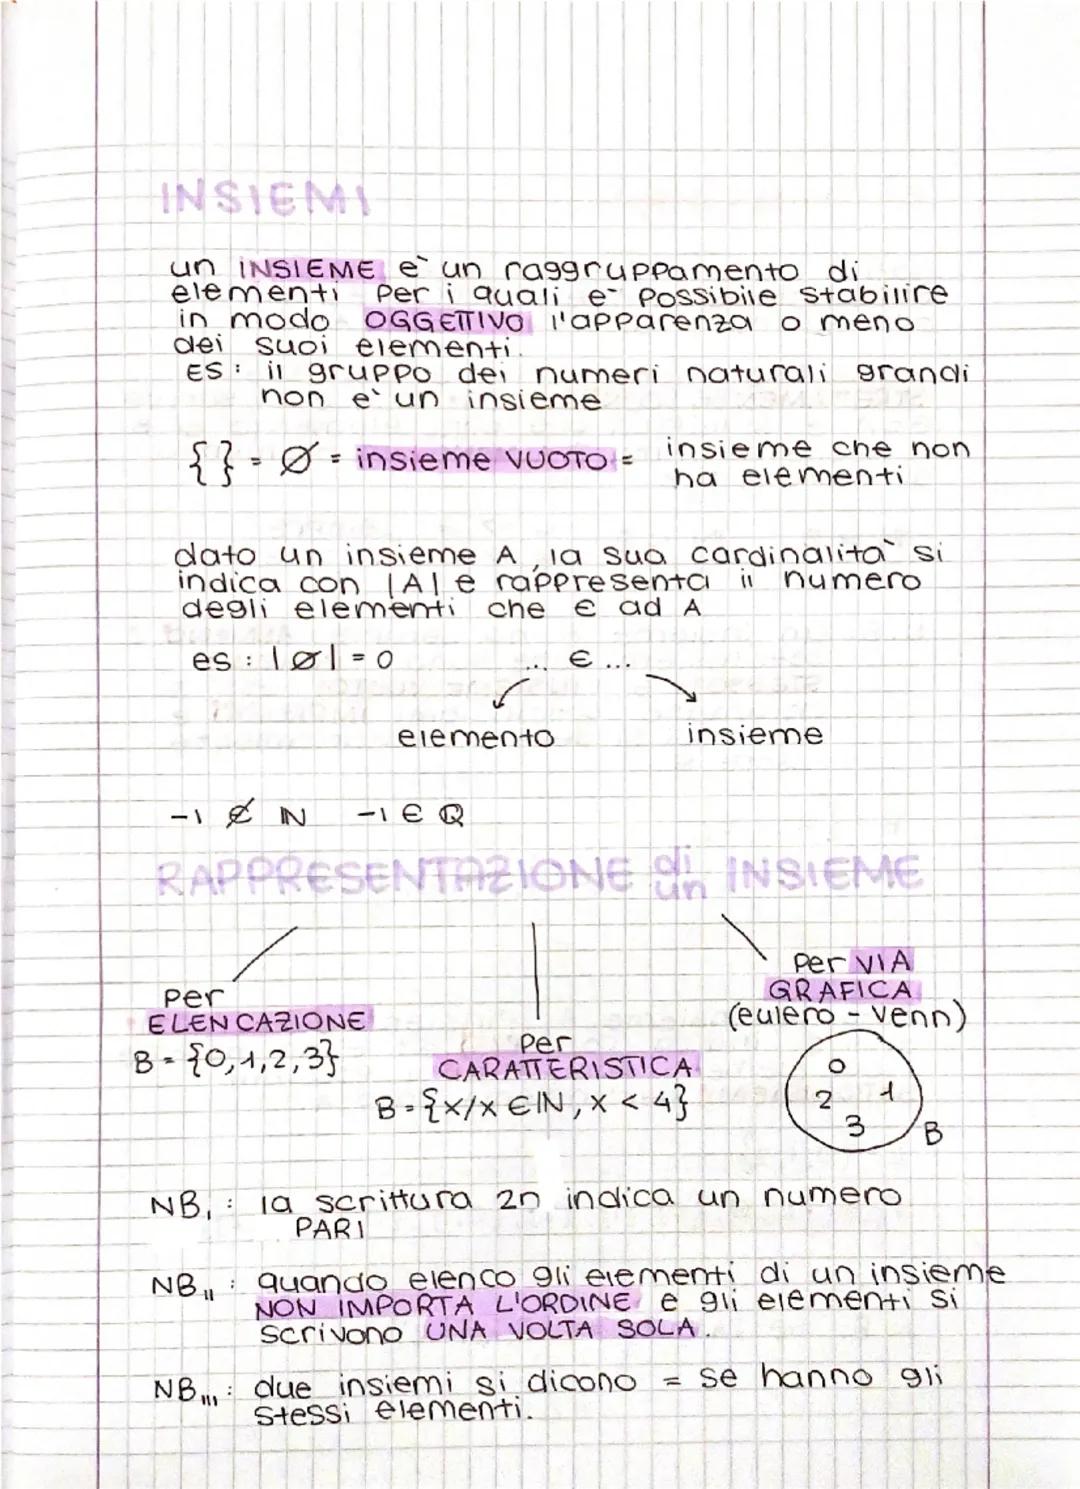 INSIEMI
un INSIEME e` un raggruppamento di
elementi per i quali e- possibile stabilire
in modo OGGETTIVO l'apparenza o meno
dei suoi elementi.
ES: il gruppo dei numeri naturali grandi
non e` un insieme
{} = Ø = insieme VUOTO = insieme che non
ha elementi
dato un insieme A, la sua cardinalita` si
indica con |A| e rappresenta il numero
degli elementi che ∈ ad A
es: |Ø| = 0 ... ∈ ...
elemento insieme
-1 ∉ ℕ -1 ∈ ℚ
RAPPRESENTAZIONE di un INSIEME
per
ELENCAZIONE
B = {0,1,2,3}
per
CARATTERISTICA
B = {x/x ∈ ℕ, x < 4}
per VIA
GRAFICA
(eulero - venn)
0
2 1
3
B
NB₁: la scrittura 2n indica un numero
PARI
NB₁₁: quando elenco gli elementi di un insieme
NON IMPORTA L'ORDINE e gli elementi si
scrivono UNA VOLTA SOLA.
NB₁₁₁: due insiemi si dicono = se hanno gli
stessi elementi.